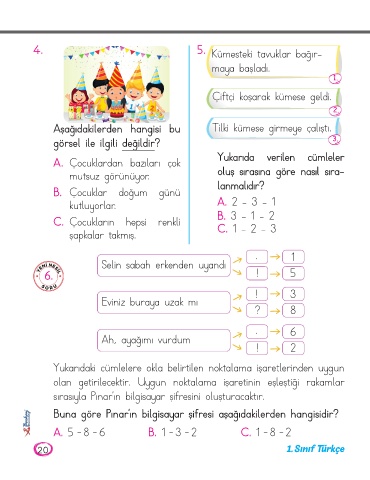 4.
Aşağıdakilerden hangisi bu
görsel ile ilgili değildir?
A. Çocuklardan bazıları çok
mutsuz görünüyor.
B. Çocuklar doğum günü
kutluyorlar.
C. Çocukların hepsi renkli
şapkalar takmış.
5.
Kümesteki tavuklar bağır-
maya başladı.
1
Çiftçi koşarak kümese geldi.
2
Tilki kümese girmeye çalıştı.
3
Yukarıda verilen cümleler
oluş sırasına göre nasıl sıra-
lanmalıdır?
A. 2 - 3 - 1
B. 3 - 1 - 2
C. 1 - 2 - 3
YENİ NESİL
6.
SORU
Selin sabah erkenden uyandı
. 1
! 5
Eviniz buraya uzak mı
! 3
? 8
Ah, ayağımı vurdum
. 6
! 2
Yukarıdaki cümlelere okla belirtilen noktalama işaretlerinden uygun
olan getirilecektir. Uygun noktalama işaretinin eşleştiği rakamlar
sırasıyla Pınar'ın bilgisayar şifresini oluşturacaktır.
Buna göre Pınar'ın bilgisayar şifresi aşağıdakilerden hangisidir?
A. 5 - 8 - 6 B. 1 - 3 - 2 C. 1 - 8 - 2
20
1. Sınıf Türkçe